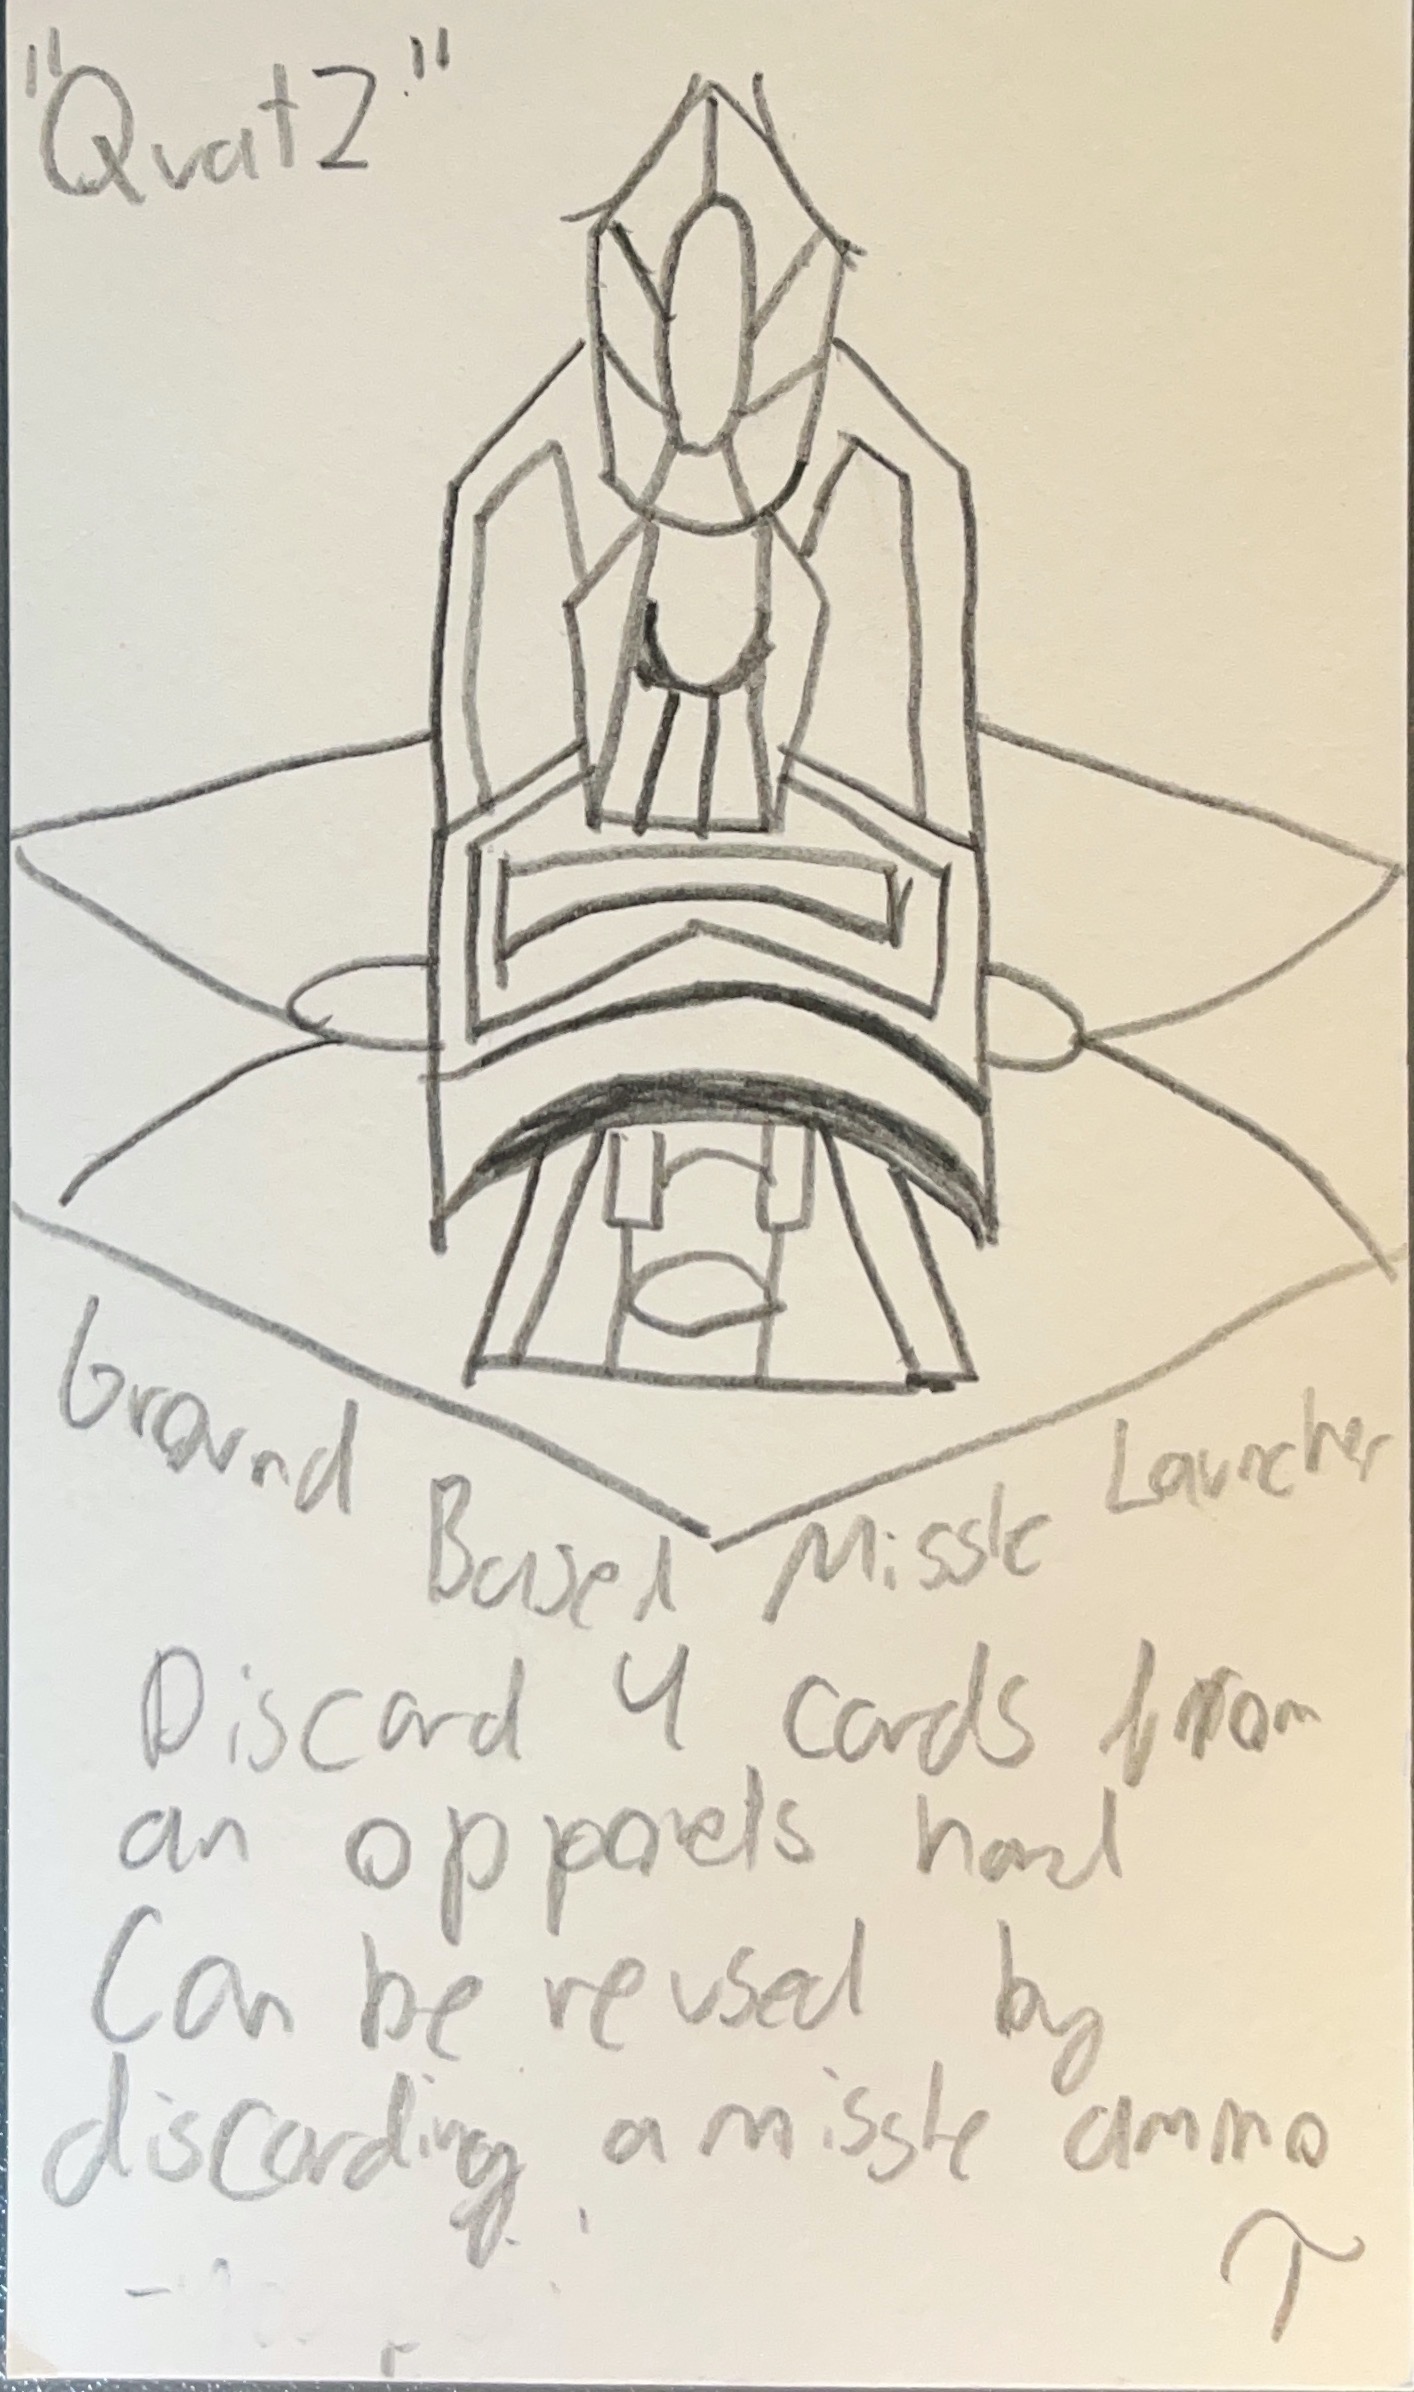 "Quatz"
Ground Based Missle Launcher
Discard 4 cards from
an opponets hand
Can be reused by
discarding a missle ammo
T